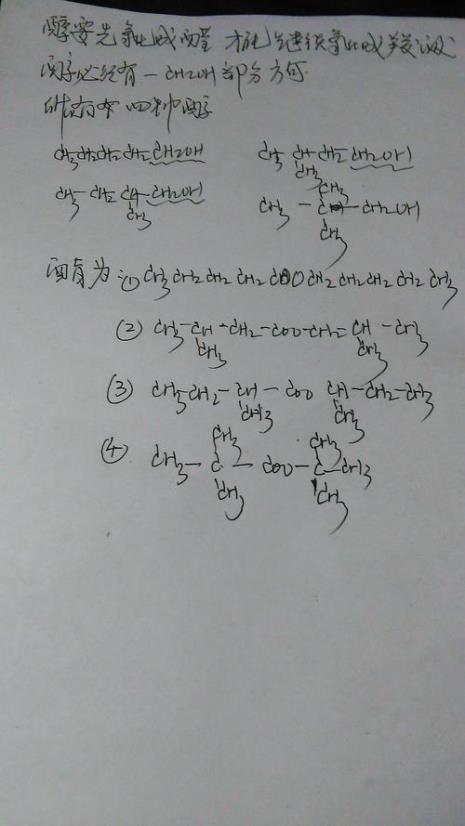 醇要先氧化成醛 才能继续氧化成羧酸
醇必须有一CH2OH部分方可
所以有 四种醇
CH3CH2CH2CH2CH2OH CH3 CH CH2 CH2OH
CH3
CH3 CH2 CH-CH2OH CH3 - C - CH2OH
CH3 CH3
CH3
酯为:① CH3CH2CH2CH2COOCH2CH2CH2CH2CH3
② CH3-CH-CH2-COO-CH2-CH-CH3
CH3 CH3
③ CH3-CH2-CH-COO CH-CH2-CH3
CH3 CH3
CH3 CH3
④ CH3-C-COO-C-CH3
CH3 CH3